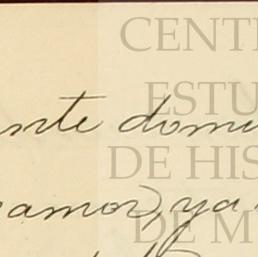 CENT
ESTU
nte domi
DE HIS
amor, ya
DE M